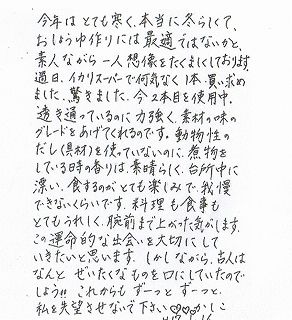 今年は とても寒く、本当に冬らしくて、
おしょうゆ作りには 最適ではないかと、
素人ながら 一人 想像をたくましくしております。
過日、イカリスーパーで何気なく1本、買い求め
ました。驚きました。今2本目を使用中。
透き通っているのに 力強く、素材の味の
グレードをあげてくれるのです。動物性の
だし(具材)を使っていないのに、煮物を
している時の香りは、素晴らしく、台所中に
漂い、食するのが とても楽しみで、我慢
できないくらいです。料理も食事も
とてもうれしく、腕前まで上がった気がします。
この運命的な出会いを大切にして
いきたいと思います。しかしながら、古人は
なんと ぜいたくなものを口にしていたので
しょう!! これからも ずーっと ずーっと、
私を失望させないで下さい♡♡かしこ